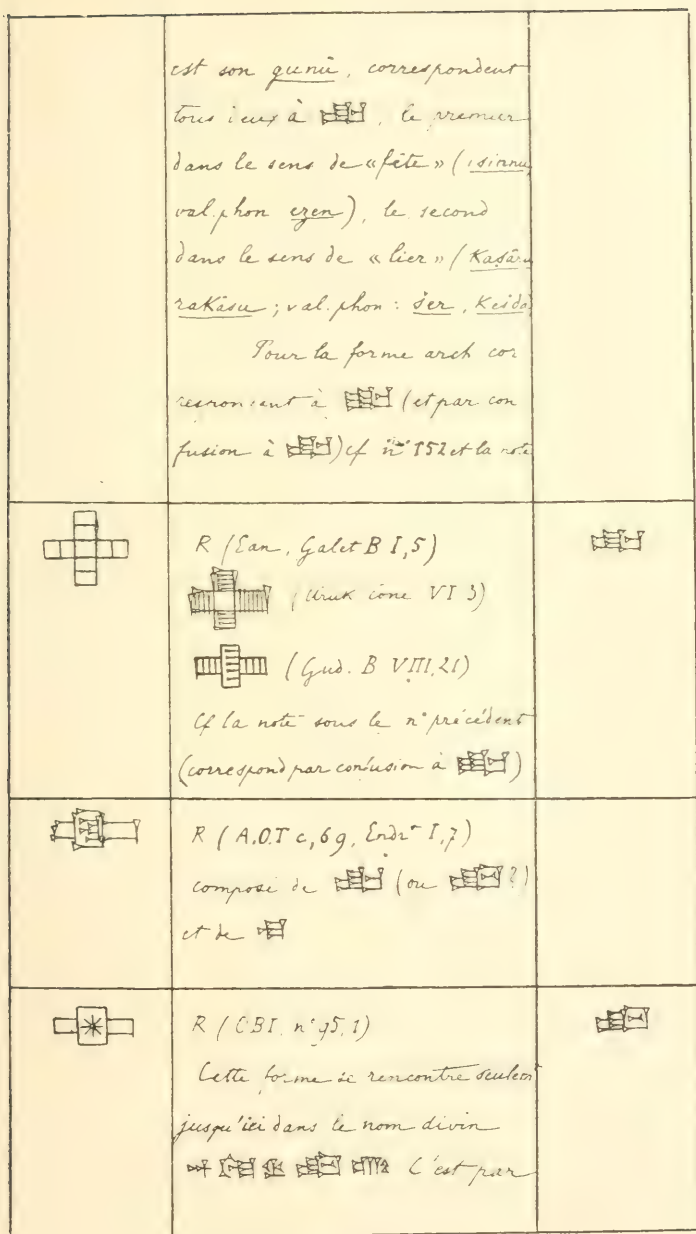 est son gunû, correspondent
tous deux à 𒂡, le premier
dans le sens de « fête » (isinnu,
val. phon ezen), le second
dans le sens de « lier » (Kaṣāru
raKāsu ; val. phon : šer, Keśda
Pour la forme arch cor
respondant à (et par con
fusion à ) cf n° 152 et la note
R (Ean, Galet B I, 5)
(Uruk cône VI 3)
(Gud. B VIII, 21)
Cf la note sous le n° précédent
(correspond par confusion à )
R (A.O.T c, 69, Endr I, 7)
composé de (ou ?)
et de
R (CBI. n° 95, 1)
Cette forme se rencontre seulem
jusqu'ici dans le nom divin
C'est par